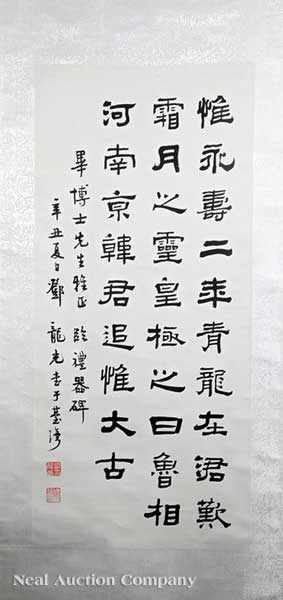 惟永壽二年青龍在涒歎
霜月之靈皇極之日魯相
河南京韓君追惟大古
畢博士先生雅正 臨禮器碑
辛丑夏日鄧龍光書于臺灣
Neal Auction Company